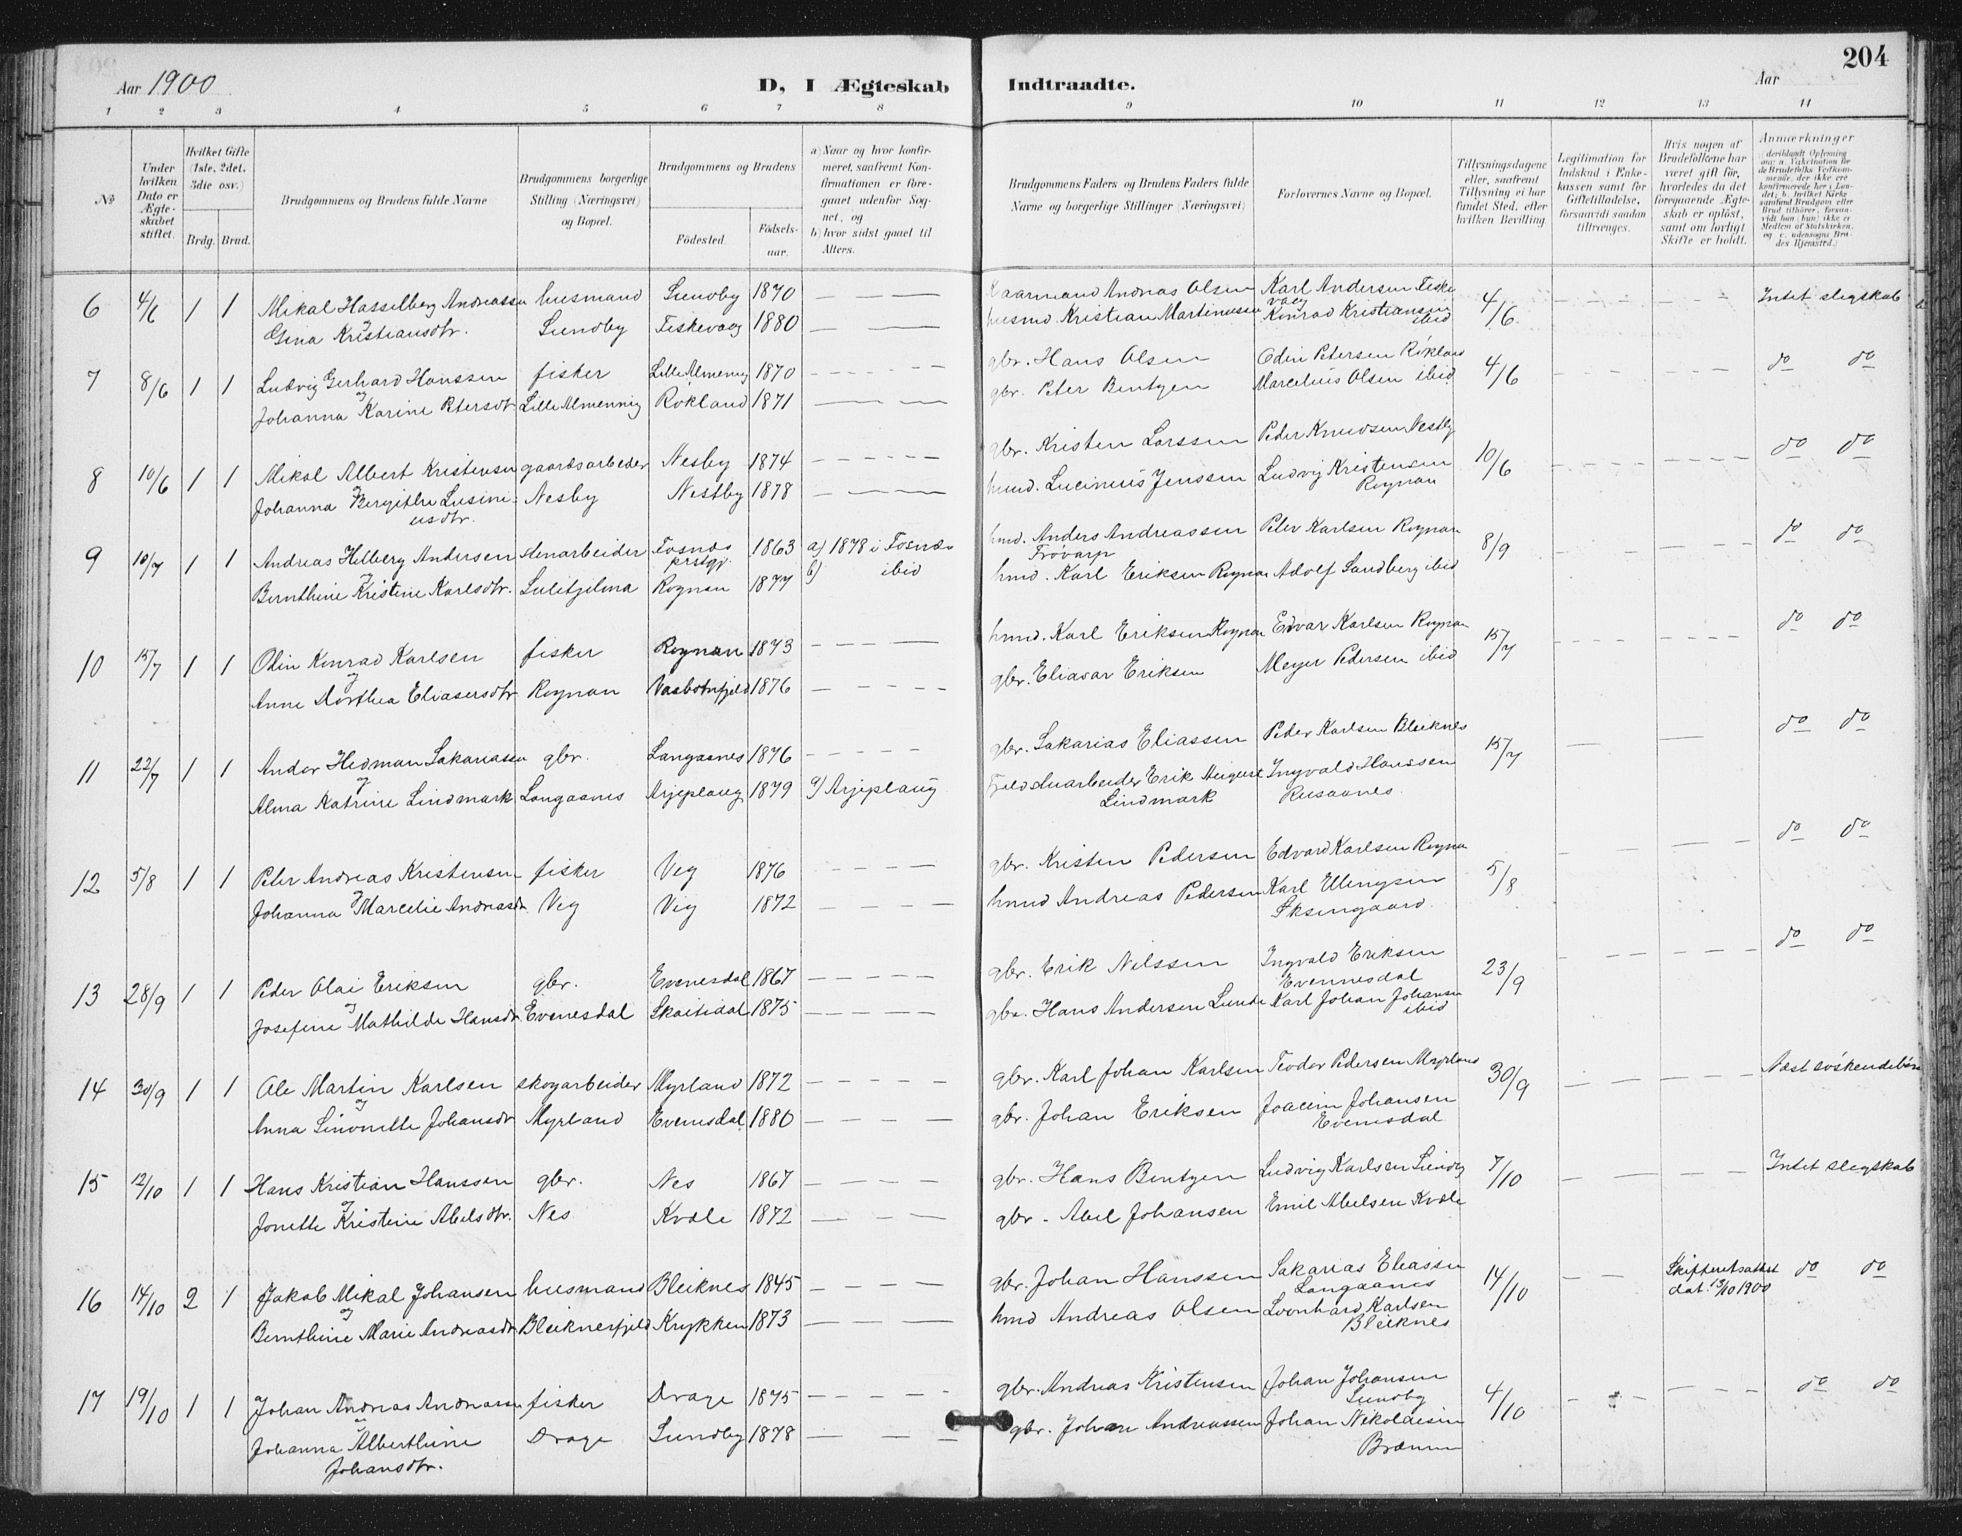 Aar 1900
D, I Ægteskab Indtraadte.
Aar
204
1 2 3 4 5 6 7 8 9 10 11 12 13 14
No
Under hvilken Dato er Ægteskabet stiftet.
Hvilket Gifte (1ste, 2det, 3die osv.)
Brdg. Brud.
Brudgommens og Brudens fulde Navne
Brudgommens borgerlige Stilling (Næringsvei) og Bopæl.
Brudgommens og Brudens
Fødested. Fødselsaar.
a) Naar og hvor konfirmeret, saafremt Konfirmationen er foregaaet udenfor Sognet, og
b) hvor sidst gaaet til Alters.
Brudgommens Faders og Brudens Faders fulde Navne og borgerlige Stillinger (Næringsvei)
Forlovernes Navne og Bopæl.
Tillysningsdagene eller, saafremt Tillysning ei har fundet Sted, efter hvilken Bevilling
Legitimation for Indskud i Enkekassen samt for Giftetilladelse, forsaavidt saadan tiltrænges.
Hvis nogen af Brudefolkene har været gift før, hvorledes da det foregaaende Ægteskab er opløst, samt om lovligt Skifte er holdt.
Anmerkninger
6 4/6 1 1 Mikal Hasselberg Andreassen husmand Sundby 1870 Andreas Olsen Karl Andersen Fiskevaag 4/6 Intet slegskab
og Gina Kristiansdtr. Sundby Fiskevaag 1880 husmd. Kristian Martinussen Konrad Kristiansen ibid
7 8/6 1 1 Ludvig Gerhard Hanssen fisker Lille Almenning 1870 gbr. Hans Olsen Odin Petersen Røkland 4/6 do do
og Johanna Karine Petersdtr Lille Almennig Røkland 1871 gbr. Peter Bentzen Marcelius Olsen ibid
8 10/6 1 1 Mikal Albert Kristensen gaardsarbeder Nesby 1874 gbr. Kristen Larssen Peder Knudsen Nestby 10/6 do do
og Johanna Bergithe Lusiniusdtr. Nesby Nestby 1878 hmd. Lucinius Jenssen Ludvig Kristensen Rognan
9 10/7 1 1 Andreas Hilberg Andersen stenarbeider Fosnæs prstgj. 1863 a) 1878 i Fosnæs b) ibid hmd. Anders Andreassen Peter Karlsen Rognan 8/9 do do
og Bernthine Kristine Karlsdtr. Sulitjelma Rognan 1877 hmd. Karl Eriksen Rognan Adolf Sandberg ibid
10 15/7 1 1 Odin Konrad Karlsen fisker Rognan 1873 hmd. Karl Eriksen Rognan Edvar Karlsen Rognan 15/7 do do
og Anne Dorthea Eliasersdtr Rognan Vasbotnfjeld 1876 gbr. Eliasar Eriksen Meyer Pedersen ibid
11 22/7 1 1 Andor Hedman Sakariassen gbr. Langaanes 1876 gbr. Sakarias Eliassen Peder Karlsen Bleiknes 15/7 do do
og Alma Katrine Lindmark Langaanes Arjeplaug 1879 a) Arjeplaug Erik August Lindmark Ingvald Hanssen Rusaanes
12 5/8 1 1 Peter Andreas Kristensen fisker Veg 1876 gbr. Kristen Pedersen Edvard Karlsen Rognan 5/8 do do
og Johanna Marcelie Andreasdtr Veg Veg 1872 hmd Andreas Pedersen Karl Ellingsen Øksengaard
13 28/9 1 1 Peder Olai Eriksen gbr. Evenesdal 1867 gbr. Erik Nilssen Ingvald Eriksen Evennesdal 23/9 do do
og Josefine Mathilde Hansdtr Evenesdal Skaitidal 1875 gbr. Hans Andersen Lunde Karl Johan Johansen ibid
14 30/9 1 1 Ole Martin Karlsen skogarbeider Myrland 1872 gbr. Karl Johan Karlsen Teodor Pedersen Myrland 30/9 Næst søskendebørn
og Anna Simonette Johansdtr Myrland Evenesdal 1880 gbr. Johan Eriksen Joacim Johansen Evenesdal
15 12/10 1 1 Hans Kristian Hanssen gbr. Nes 1867 gbr. Hans Bentzen Ludvig Karlsen Sundby 7/10 Intet slegskab
og Jonette Kristine Abelsdtr. Nes Kvæle 1872 gbr. Abel Johansen Emil Abelsen Kvæle
16 14/10 2 1 Jakob Mikal Johansen husmand Bleiknes 1845 gbr. Johan Hanssen Sakarias Eliassen Langaanes 14/10 Skifteretsattest dat. 13/10 1900 do do
og Bernthine Marie Andreasdtr Bleiknesfjeld Krykken 1873 hmd Andreas Olsen Leonhard Karlsen Bleiknes
17 19/10 1 1 Johan Andreas Andreassen fisker Drage 1875 gbr. Andreas Kristensen Johan Johansen Sundby 4/10 do do
og Johanna Alberthine Johansdtr. Drage Sundby 1878 gbr. Johan Andreassen Johan Nikolaisen